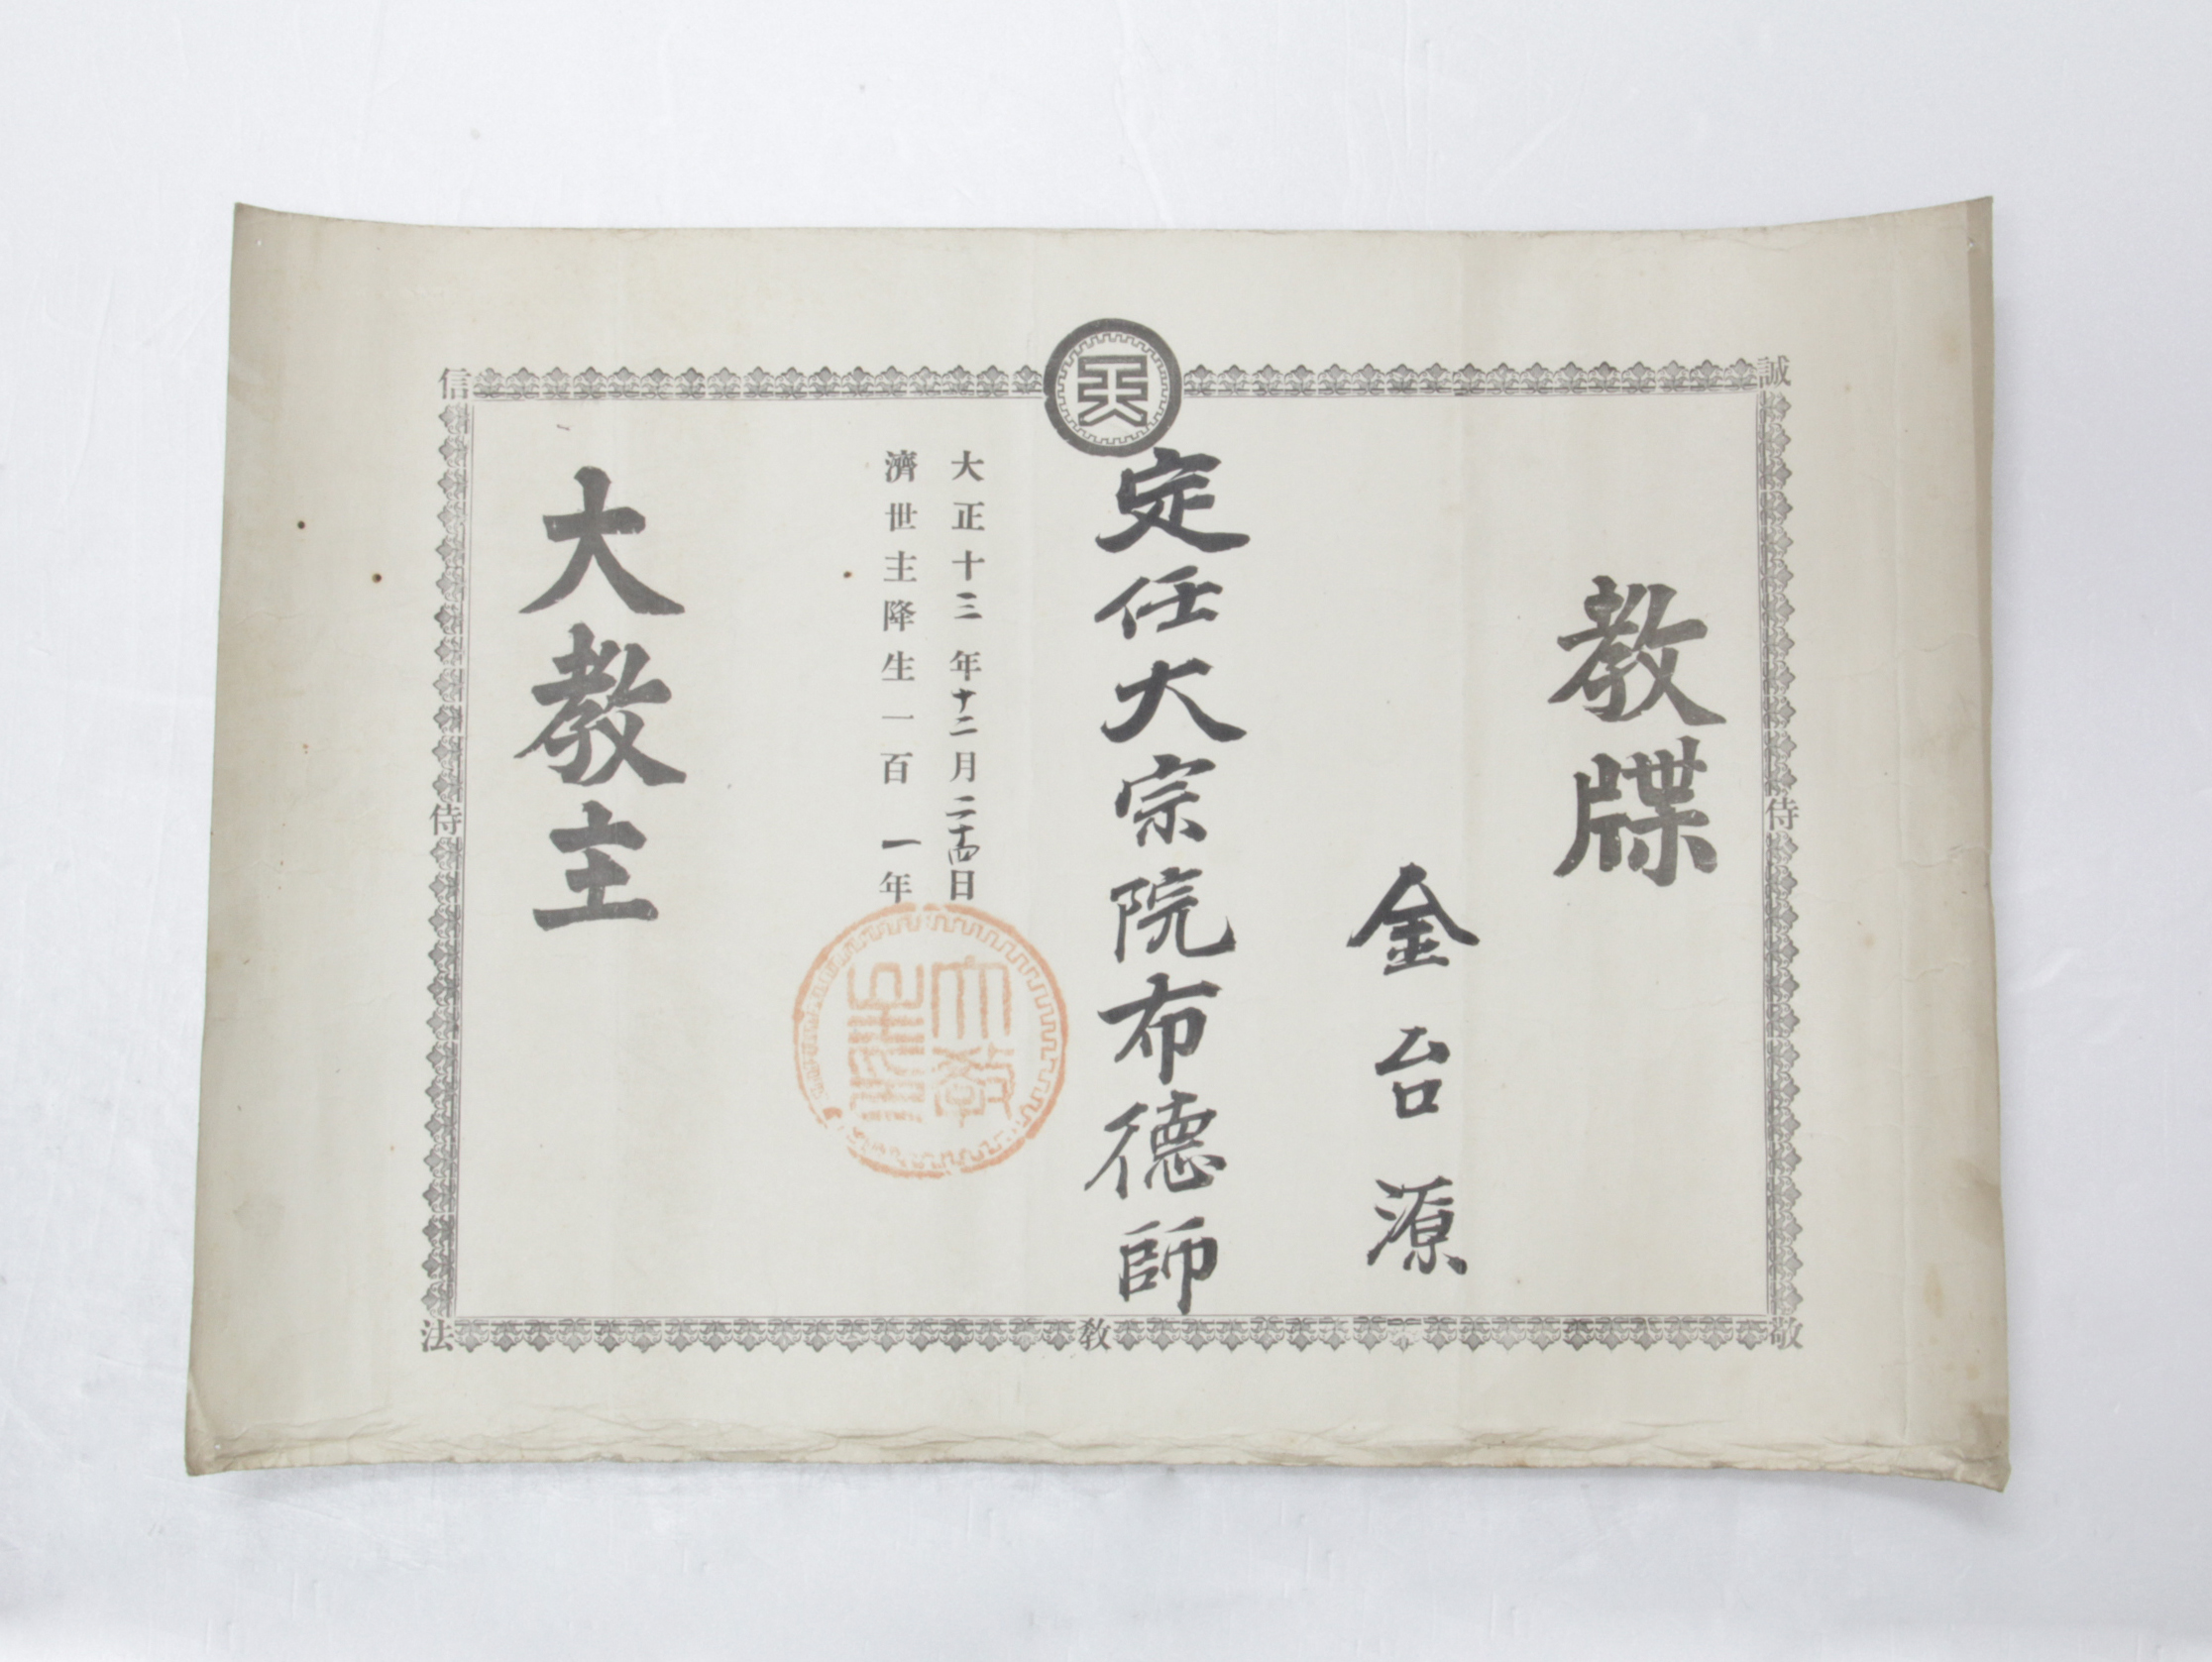 教牒
金台源
定任大宗院布德師
大正十三年十二月二十四日
濟世主降生一百一年
大教主
天
誠
信
侍
侍
法
教
敬
大教
主印